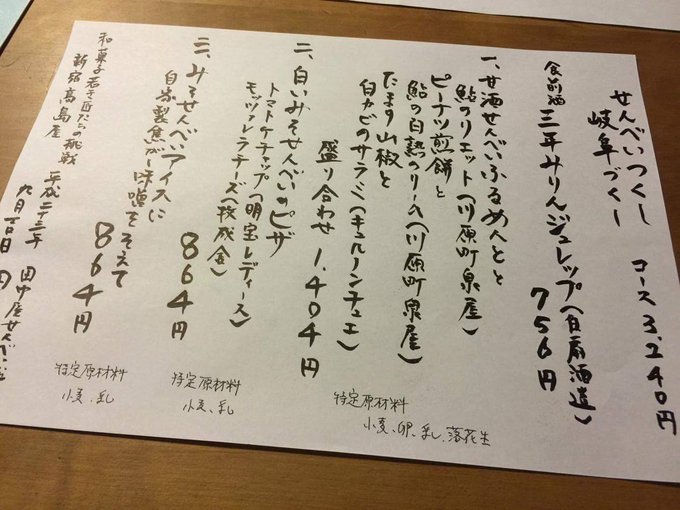 せんべいつくし
岐阜づくし コース3.240円
食前酒 三年みりんジュレップ(白扇酒造)
756円
一、甘酒せんべいふるめんとと
鮎のリエット(川原町泉屋)
ピーナツ煎餅と
鮎の白熟クリーム(川原町泉屋)
たまり山椒と
白カビのサラミ(キュルノンチュエ)
盛り合わせ 1.404円
特定原材料
小麦、卵、乳、落花生
二、白いみそせんべいのピザ
トマトケチャップ(明宝レディース)
モッツァレラチーズ(牧成舎)
864円
特定原材料
小麦、乳
三、みそせんべいアイスに
自家製焦がし味噌をそえて
864円
特定原材料
小麦、乳
和菓子 若き匠たちの挑戦
新宿高島屋
田中屋せんべい